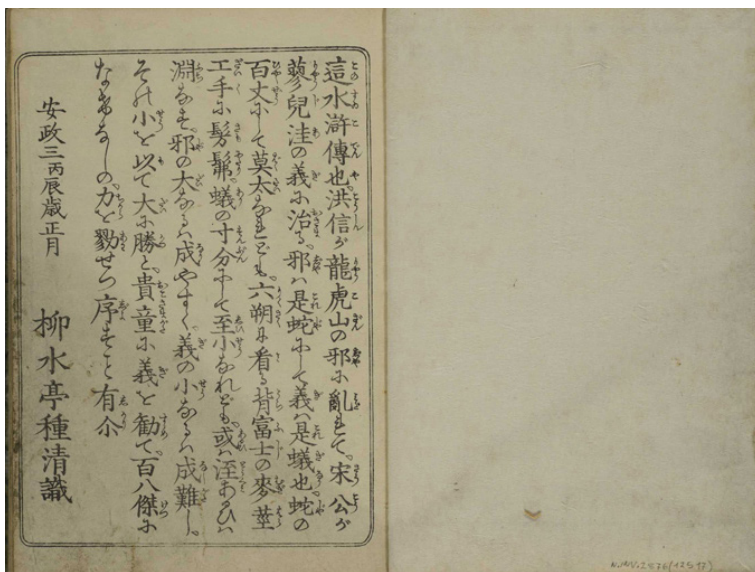 這水滸傳也。洪信が龍虎山の邪に亂きて。宋公が
蓼兒洼の義に治る。邪ハ是蛇にして義ハ是蟻也蛇の
百丈にて莫太なれども。六朔に看る背富士の麥莖
工手に髣髴蟻の寸分にて至小なれども。或ハ
淵なす。邪の大なるハ成やすく。義の小なるハ成難し。
その小を以て大に勝と。貴童に義を勸て。百八傑に
なしの。力を戮せつ序すこと有尒
安政三丙辰歳正月
柳水亭種清識